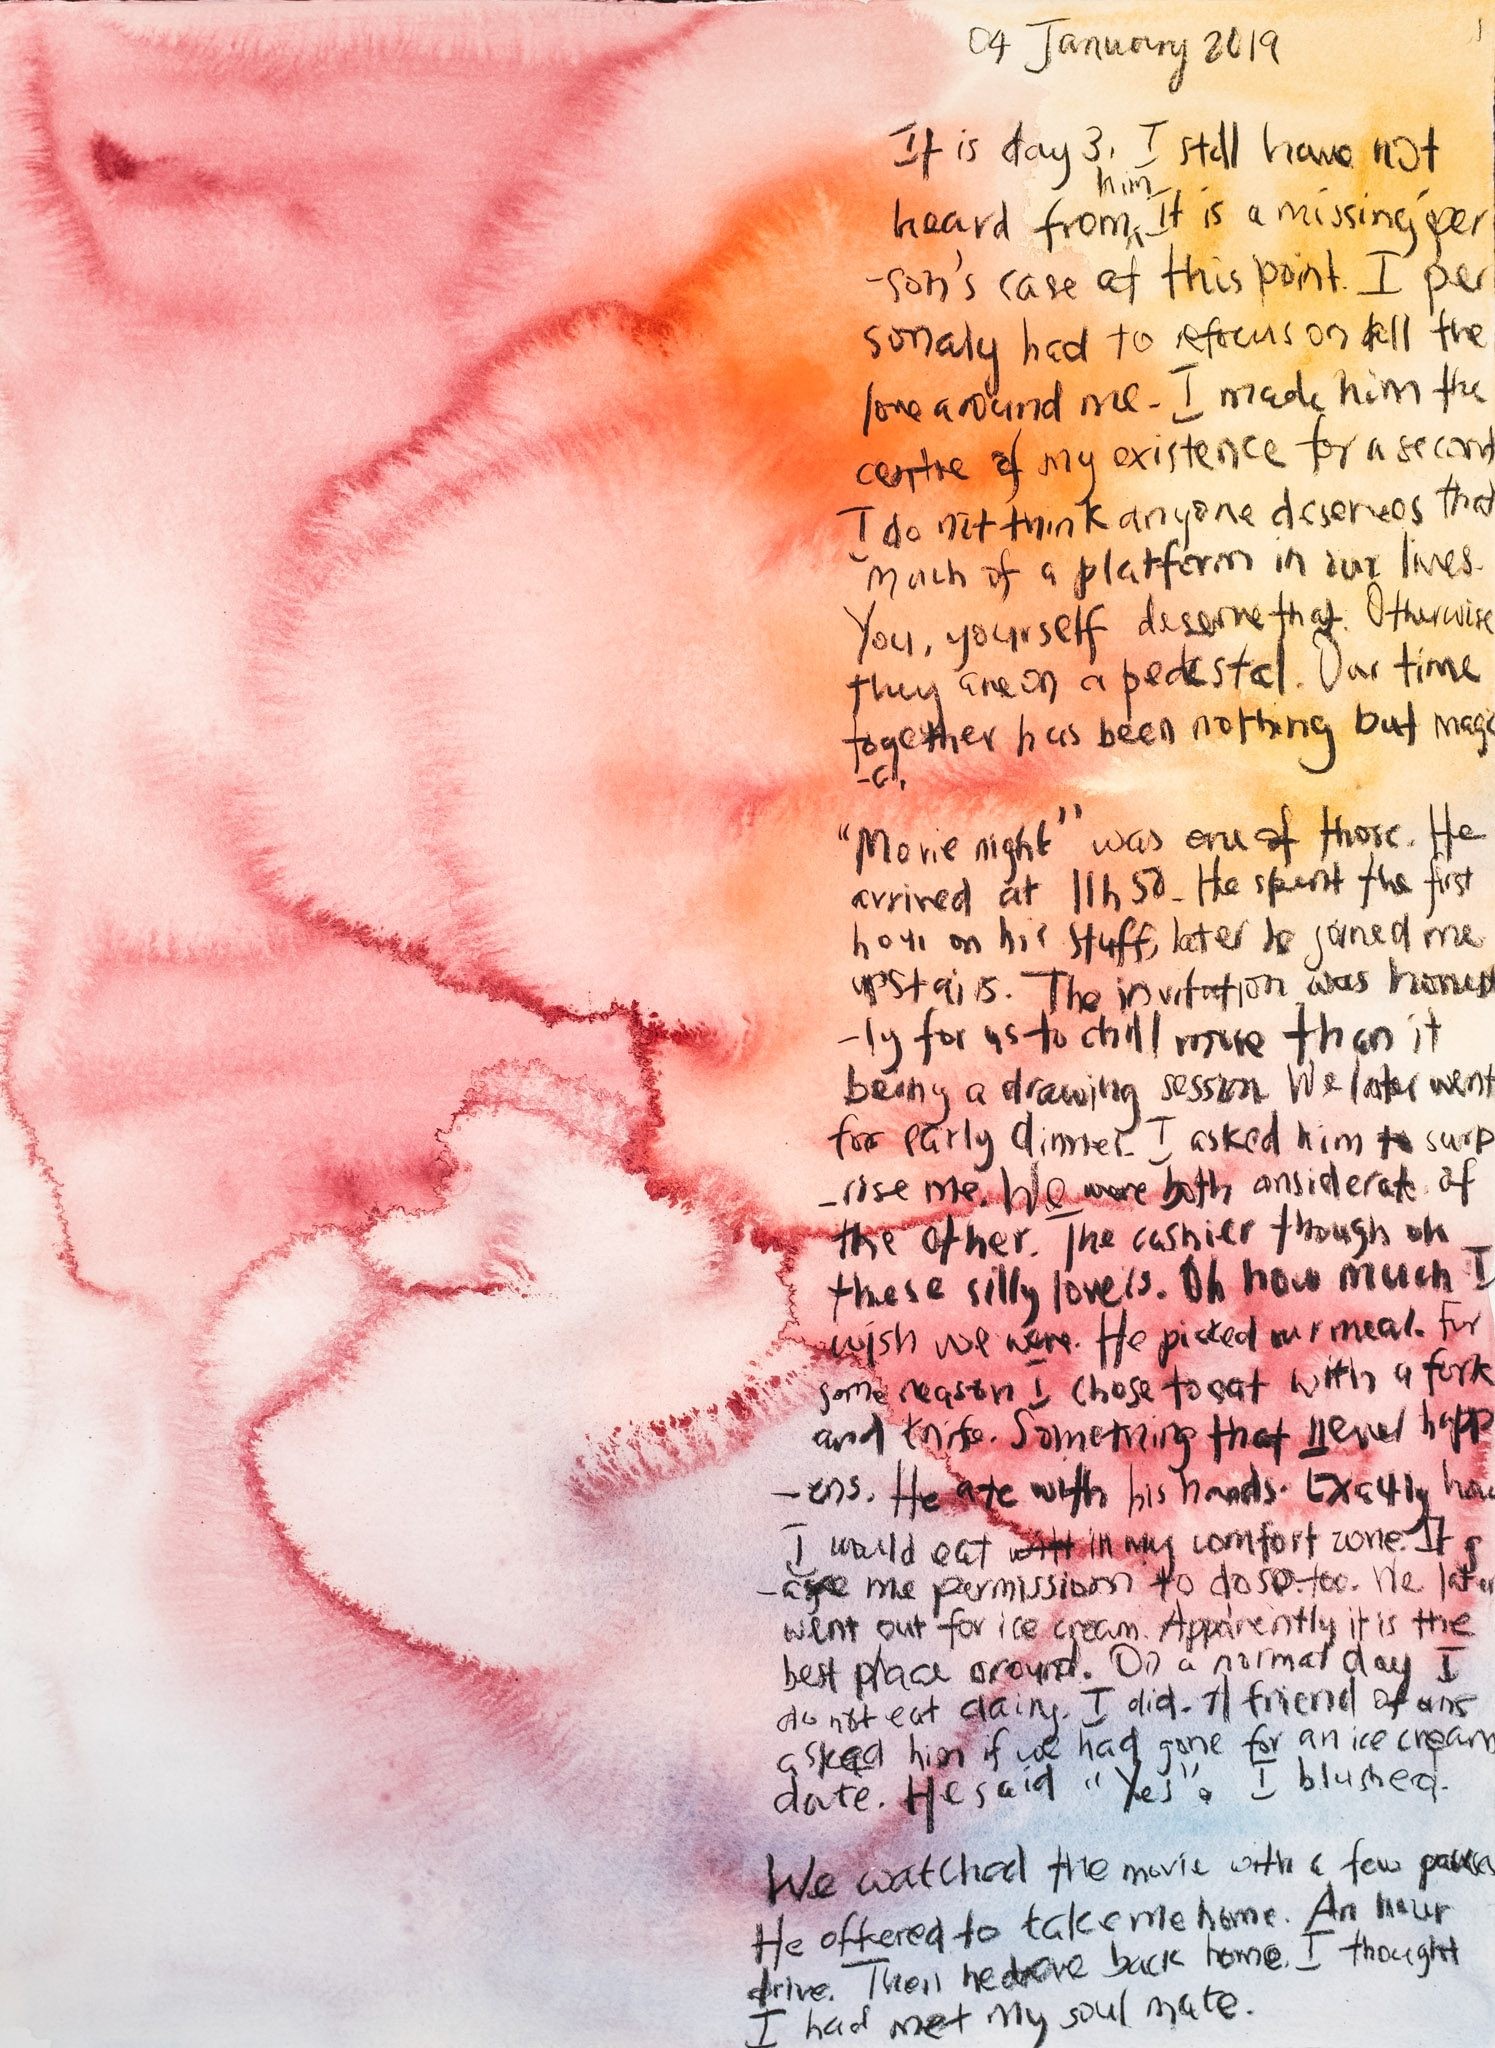 04 January 2019
It is day 3. I still have not
him
heard from ‸ It is a missing per
-son's case at this point. I per
sonaly had to refocus on all the
love around me. I made him the
centre of my existence for a second
I do not think anyone deserves that
much of a platform in our lives.
You, yourself deserve that. Otherwise
they are on a pedestal. Our time
together has been nothing but magic
-al.
"Movie night" was one of those. He
arrived at 11h50. He spent the first
hour on his stuff, later he joined me
upstairs. The invitation was honest
-ly for us to chill more than it
being a drawing session. We later went
for early dinner. I asked him to surp
-rise me. We were both considerate of
the other. The cashier though oh
these silly lovers. Oh how much I
wish we were. He picked our meal. For
some reason I chose to eat with a fork
and knife. Something that never happ
-ens. He ate with his hands. Exactly how
I would eat in my comfort zone. It g
-ave me permission to do so too. We later
went out for ice cream. Apparently it is the
best place around. On a normal day I
do not eat dairy. I did. A friend of ours
asked him if we had gone for an ice cream
date. He said "Yes". I blushed.
We watched the movie with a few pauses
He offered to take me home. An hour
drive. Then he drove back home. I thought
I had met my soul mate.